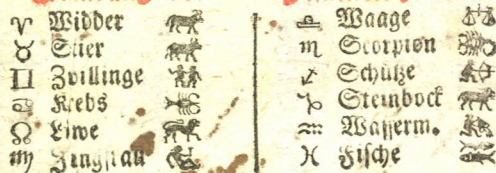 ♈ Widder
♉ Stier
♊ Zvillinge
♋ Krebs
♌ Löwe
♍ Jungfrau
♎ Waage
♏ Scorpion
♐ Schütze
♑ Steinbock
♒ Wasserm.
♓ Fische